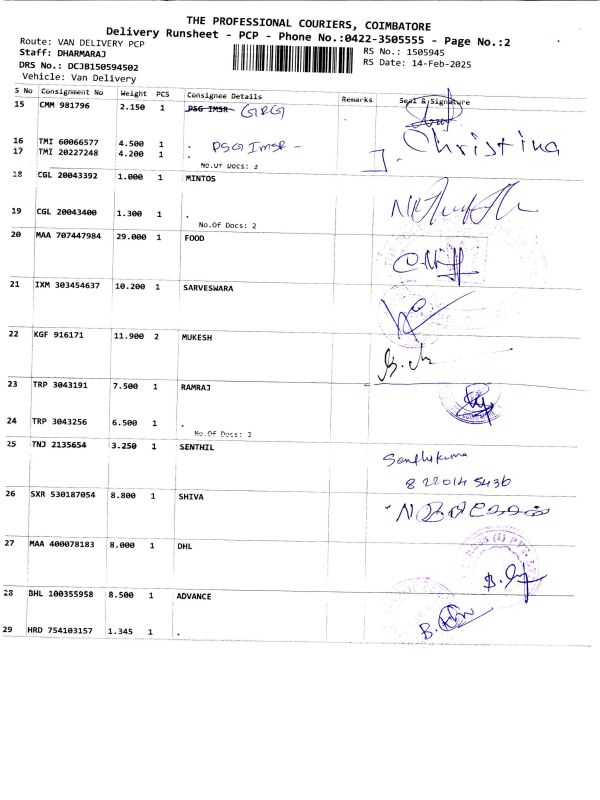 THE PROFESSIONAL COURIERS, COIMBATORE
Delivery Runsheet - PCP - Phone No.:0422-3505555 - Page No.:2
Route: VAN DELIVERY PCP
Staff: DHARMARAJ
DRS No.: DCJB150594502
Vehicle: Van Delivery
RS No.: 1505945
RS Date: 14-Feb-2025
S No Consignment No Weight PCS Consignee Details Remarks Seal & Signature
15 CMM 981796 2.150 1 PSG IMSR GRG
16 TMI 60066577 4.500 1 . PSG Imsr - Christina
17 TMI 20227248 4.200 1 .
No.Of Docs: 3
18 CGL 20043392 1.000 1 MINTOS
19 CGL 20043400 1.300 1 .
No.Of Docs: 2
20 MAA 707447984 29.000 1 FOOD
21 IXM 303454637 10.200 1 SARVESWARA
22 KGF 916171 11.900 2 MUKESH
23 TRP 3043191 7.500 1 RAMRAJ
24 TRP 3043256 6.500 1 .
No.Of Docs: 2
25 TNJ 2135654 3.250 1 SENTHIL
8 22014 5436
26 SXR 530187054 8.800 1 SHIVA
27 MAA 400078183 8.000 1 DHL
28 BHL 100355958 8.500 1 ADVANCE
29 HRD 754103157 1.345 1 .